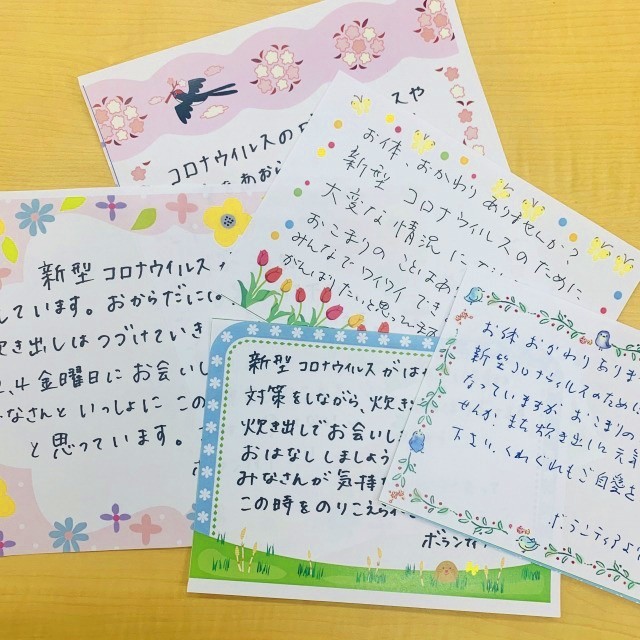 スや
コロナウイルスの
お体、おかわりありませんか?
新型 コロナウイルスのために
大変な情況に
おこまりの ことはあ
みんなで ワイワイ でき
がんばりたいと思ってい
新型 コロナウイルス
しています。おからだに
炊き出しは つづけていき
2,4 金曜日に お会いし
なさんと いっしょに この
と 思っています。
新型 コロナウイルスが は
対策をしながら、炊き
炊き出しで お会いし
おはなし しましょう
みなさんが 気持
この時を のりこえられ
ボランティ
お体 おかわりありま
新型コロナウイルスのために
なっていますが、おこまりの
せんか? また 炊き出しに 元気
下さい。くれぐれもご自愛を
ボランティアより